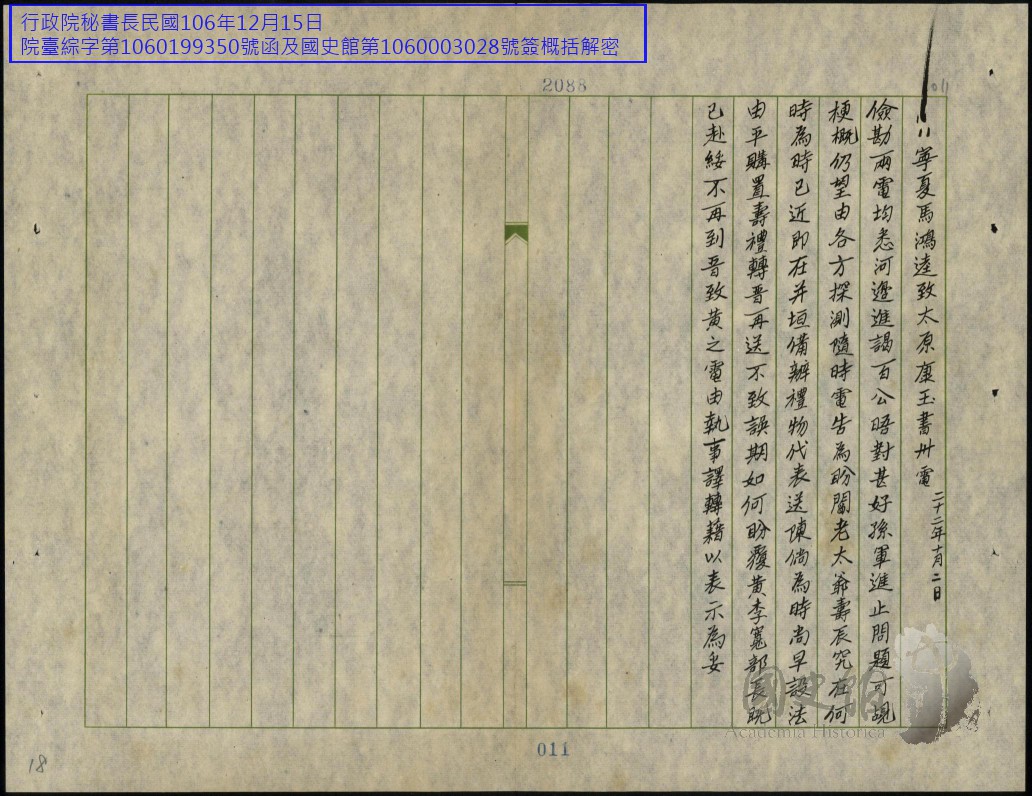 行政院秘書長民國106年12月15日
院臺綜字第1060199350號函及國史館第1060003028號簽概括解密
2088
寧夏馬鴻逵致太原康玉書卅電 二十二年十月二日
儉勘兩電均悉河邊進謁百公晤對甚好孫軍進止問題可覘
梗概仍望由各方探測隨時電告為盼閻老太爺壽辰究在何
時為時已近即在并垣備辦禮物代表送陳倘為時尚早設法
由平購置壽禮轉晋再送不致誤期如何盼覆黃季寬部長既
已赴綏不再到晋致黃之電由執事譯轉藉以表示為妥
國史館
Academia Historica
011
18